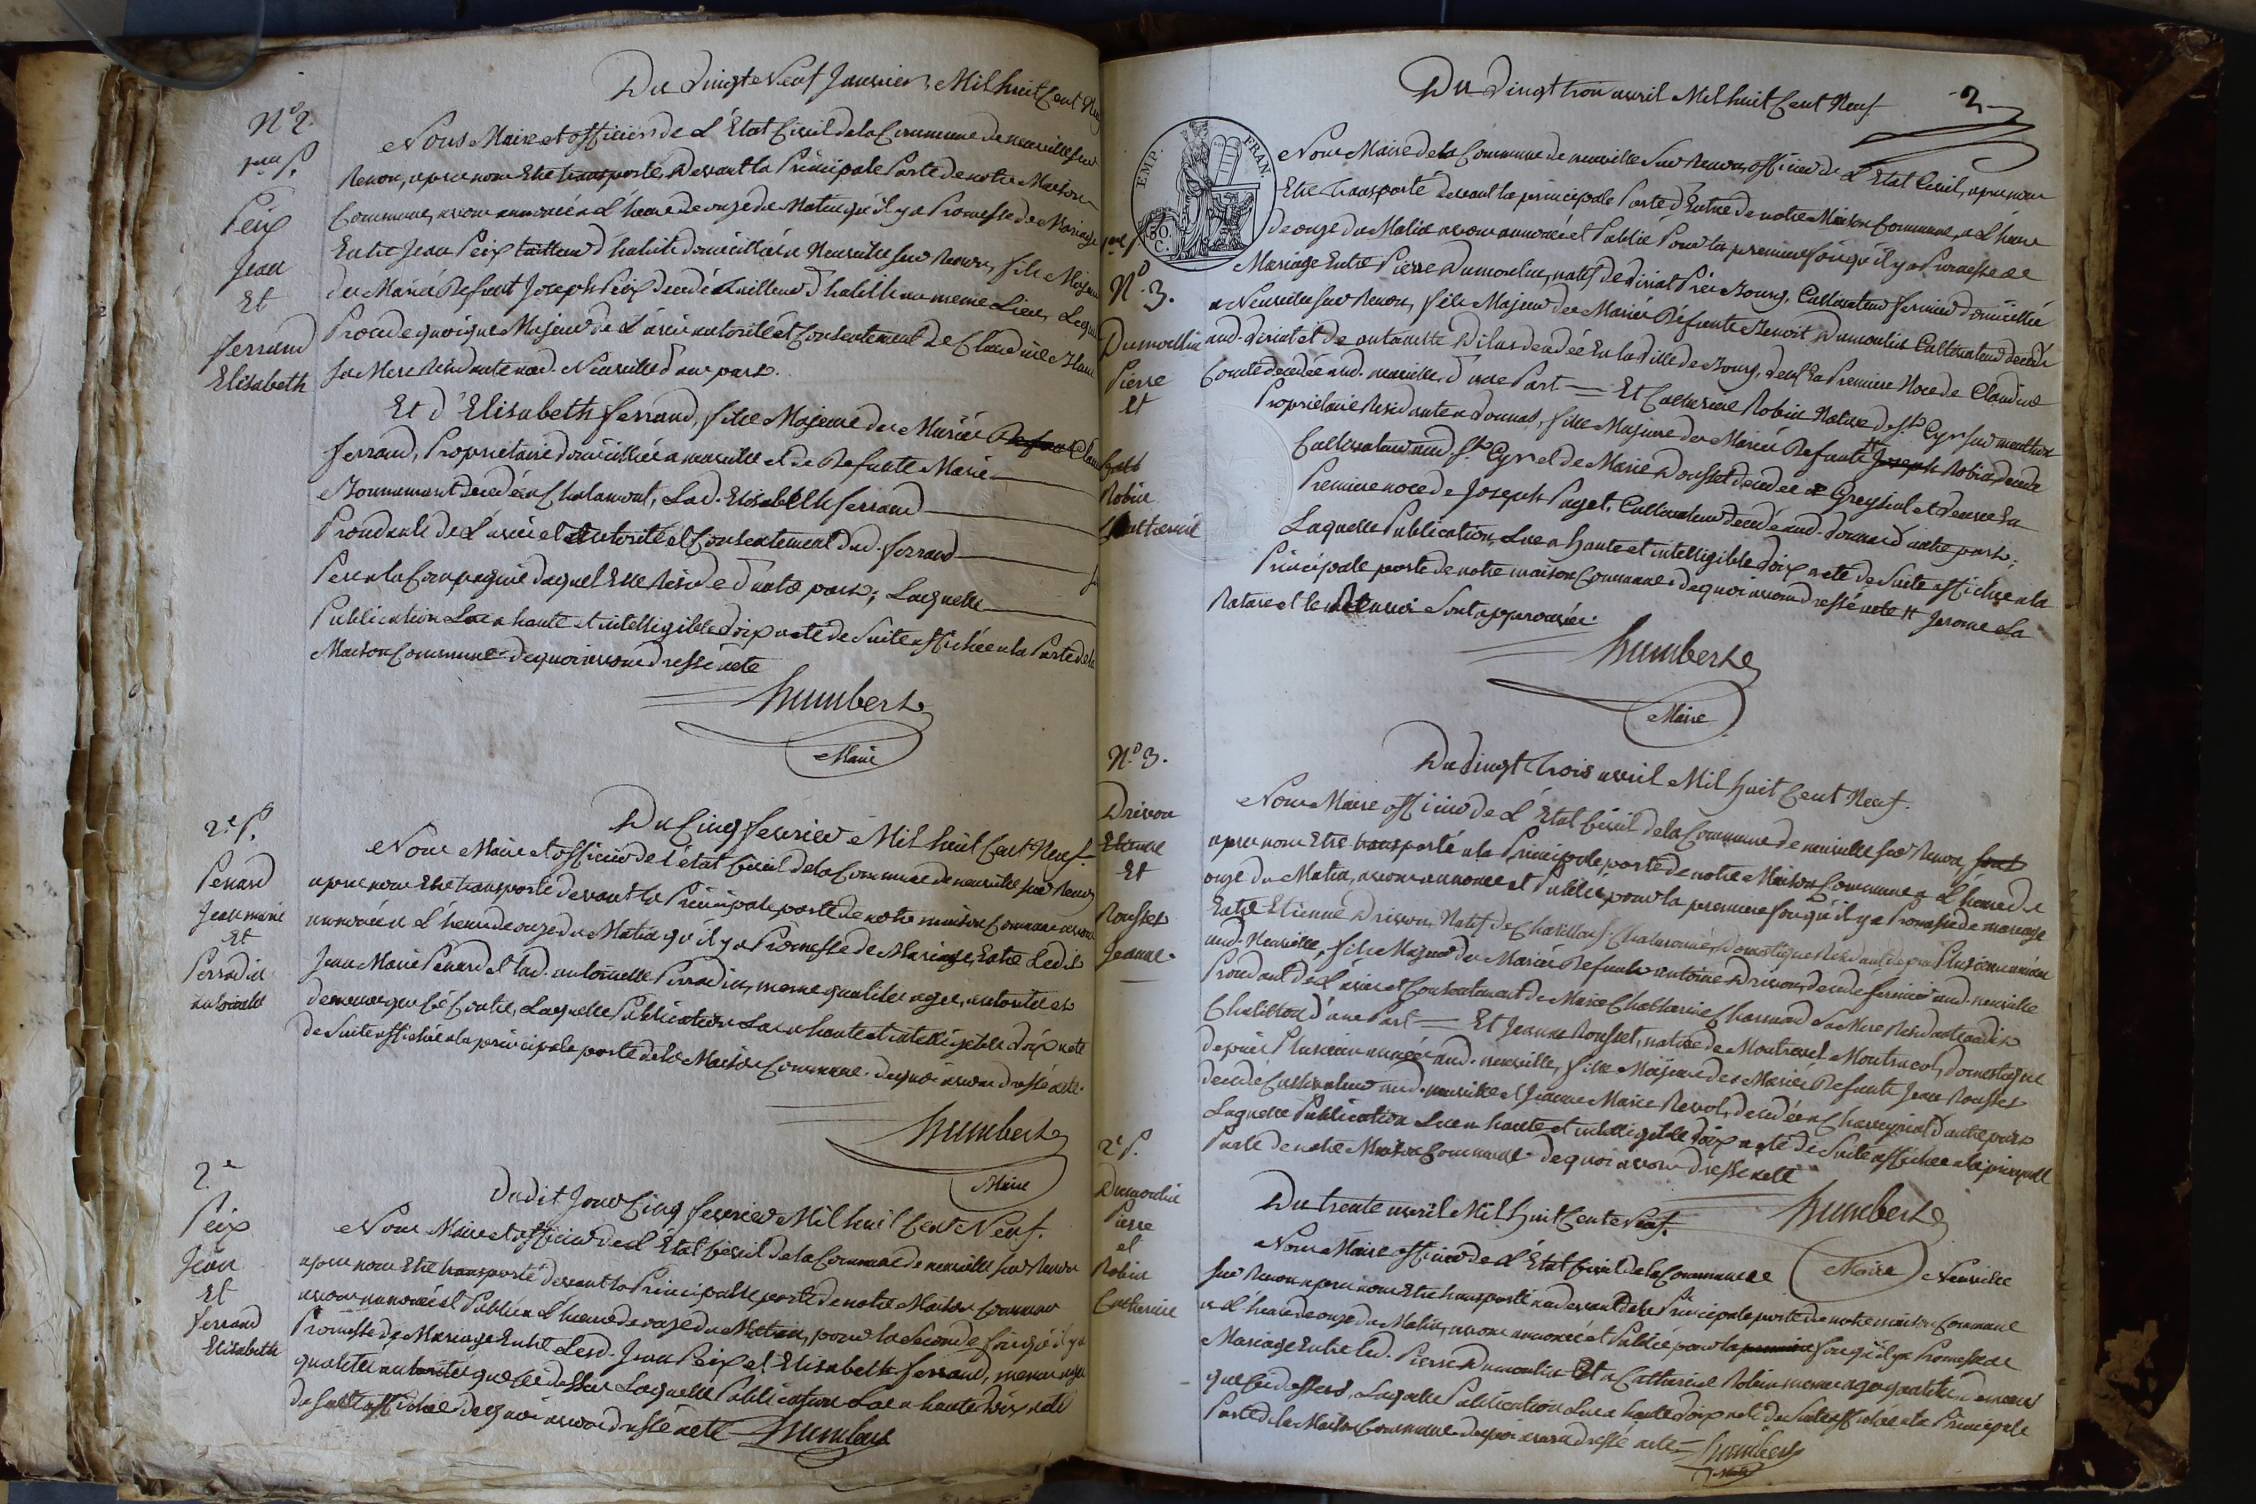 Du Vingt Neuf Janvier, Mil huit Cent Neuf
N.o 2.
1.ere P.
Peix
Jean
Et
ferrand
Elisabeth
Nous Maire et officier de L'État Civil de la Commune de neuville sur
Renon, apres nous Etre transporté, Devant la Principale Porte de notre Maison
Commune, avons annoncé a L'heure de onze du Matin qu'il y a Promesse de Mariage
Entre Jean Peix tailleur d'habits domicillié a Neuville sur Renon, fils Majeur
des Mariés Defunt Joseph Peix decedé tailleur d'habits au meme Lieu, Lequel
Procede quoique Majeur de L'avis autorité et Consentement de Claudine
sa Mere Residante aud. Neuville d'une part.
Et d'Elisabeth ferrand, fille Majeure des Mariés Defunt
ferrand, Proprietaire domicillié a neuville et de Defunte Marie
decedée a Chalamont, Lad. Elisabeth ferrand
Procedante de L'avis et autorité et Consentement dud. ferrand
Pere en la Compagnie duquel Elle Reside d'autre part; Laquelle
Publication Lue a haute et intelligible Voix a eté de Suite affichée a la Porte de la
Maison Commune dequoi avons dressé acte
humbert
Maire
Du Cinq fevrier Mil huit Cent Neuf.
2.e P.
Penard
Jean marie
Et
Perradin
antoinette
Nous Maire et officier de L'état Civil de la Commune de neuville sur Renon
apres nous Etre transporté devant la Principale porte de notre maison Commune avons
annoncé a L'heure de onze du Matin qu'il y a Promesse de Mariage, Entre Ledit
Jean Marie Penard et Lad. antoinette Perradin, meme qualités ages, autorités et
demeure que Ci Contre, Laquelle Publication Lue a haute et intelligible Voix a eté
de Suite affichée a la principale porte de la Maison Commune. dequoi avons dressé acte.
humbert
Maire
Dudit Jour Cinq fevrier Mil huit Cent Neuf.
2.e
Peix
Jean
Et
ferrand
Elisabeth
Nous Maire et officier de L'État Civil de la Commune de neuville sur Renon
apres nous Etre transporté devant la Principale porte de notre Maison Commune
avons annoncé et Publié a L'heure de onze du Matin, pour la Seconde fois qu'il y a
Promesse de Mariage Entre Lesd. Jean Peix et Elisabeth ferrand, memes ages
qualités autorités que Ci dessus Laquelle Publication Lue a haute Voix a eté
de Suite affichée dequoi avons dressé acte humbert
Du Vingt trois avril Mil huit Cent Neuf
2
EMP. FRAN.
50. C.
1.ere P
N.o 3.
Dumoulin
Pierre
Et
Robin
Catherine
Nous Maire de la Commune de neuville Sur Renon, officier de L'État Civil, apres nous
Etre transporté devant la principale Porte d'Entré de notre Maison Commune, a L'heure
de onze du Matin avons annoncé et Publié Pour la premiere fois qu'il y a Promesse de
Mariage Entre Pierre Dumoulin, natif de Viriat Près Bourg, Cultivateur fermier domicillié
a Neuville Sur Renon, fils Majeur des Mariés Défunts Benoit Dumoulin Cultivateur decedé
aud. Viriat et de antoinette decedée En la Ville de Bourg, Veuf En Premiere Noce de Claudine
Comte decedée aud. neuville, d'une Part = Et Catherine Robin Native de S.t Cyr Sur menthon
Proprietaire Residante a Vonnas, fille Majeure des Mariés Defunts # Joseph Robin, decedé
Cultivateur aud. S.t Cyr et de Marie Dousset decedée a Greyziat et Veuve En
Premiere noce de Joseph Puget, Cultivateur decedé aud. Vonnas d'autre part;
Laquelle Publication, Lue a haute et intelligible Voix a eté de Suite affichée a la
Principale porte de notre maison Commune. dequoi avons dressé acte # Jerome La
Rature et le Renvoi Sont approuvés.
humbert
Maire
Du Vingt Trois avril Mil huit Cent Neuf.
N.o 3.
Drivon
Etienne
Et
Rousset
Jeanne.
Nous Maire officier de L'État Civil de la Commune de neuville sur Renon,
apres nous Etre transporté a la Principale porte de notre Maison Commune a L'heure de
onze du Matin, avons annoncé et Publié, pour la premiere fois qu'il y a Promesse de mariage
Entre Etienne Drivon, Natif de Chatillon S. Chalaronne, domestique Residant depuis Plusieurs années
aud. Neuville, fils Majeur des Mariés Defunts antoine Drivon, decedé fermier aud. neuville
Procedant de L'avis et Consentement de Marie Chatherine Charnard Sa Mere Residante audit
Chatillon d'une Part = Et Jeanne Rousset, native de Montracol, domestique
depuis Plusieurs années aud. neuville, fille Majeure des Mariés Defunts Jean Rousset
decedé Cultivateur aud. neuville et Jeanne Marie Revol, decedée a Chaveyriat d'autre part
Laquelle Publication Lue a haute et intelligible Voix a eté de Suite affichée a la principale
Porte de notre Maison Commune dequoi avons dressé acte
humbert
Maire
Du trente avril Mil huit Cent Neuf.
2.e P.
Dumoulin
Pierre
et
Robin
Catherine
Nous Maire officier de L'État Civil de la Commune de Neuville
sur Renon apres nous Etre transporté au devant de la Principale porte de notre maison Commune
a L'heure de onze du Matin, avons annoncé et Publié pour la premiere fois qu'il y a Promesse de
Mariage Entre led. Pierre Dumoulin Et a Catherine Robin meme age qualités demeures
que Ci dessus, Laquelle Publication Lue a haute Voix a eté de Suite affichée a la Principale
Porte de la Maison Commune dequoi avons dressé acte = humbert
Maire